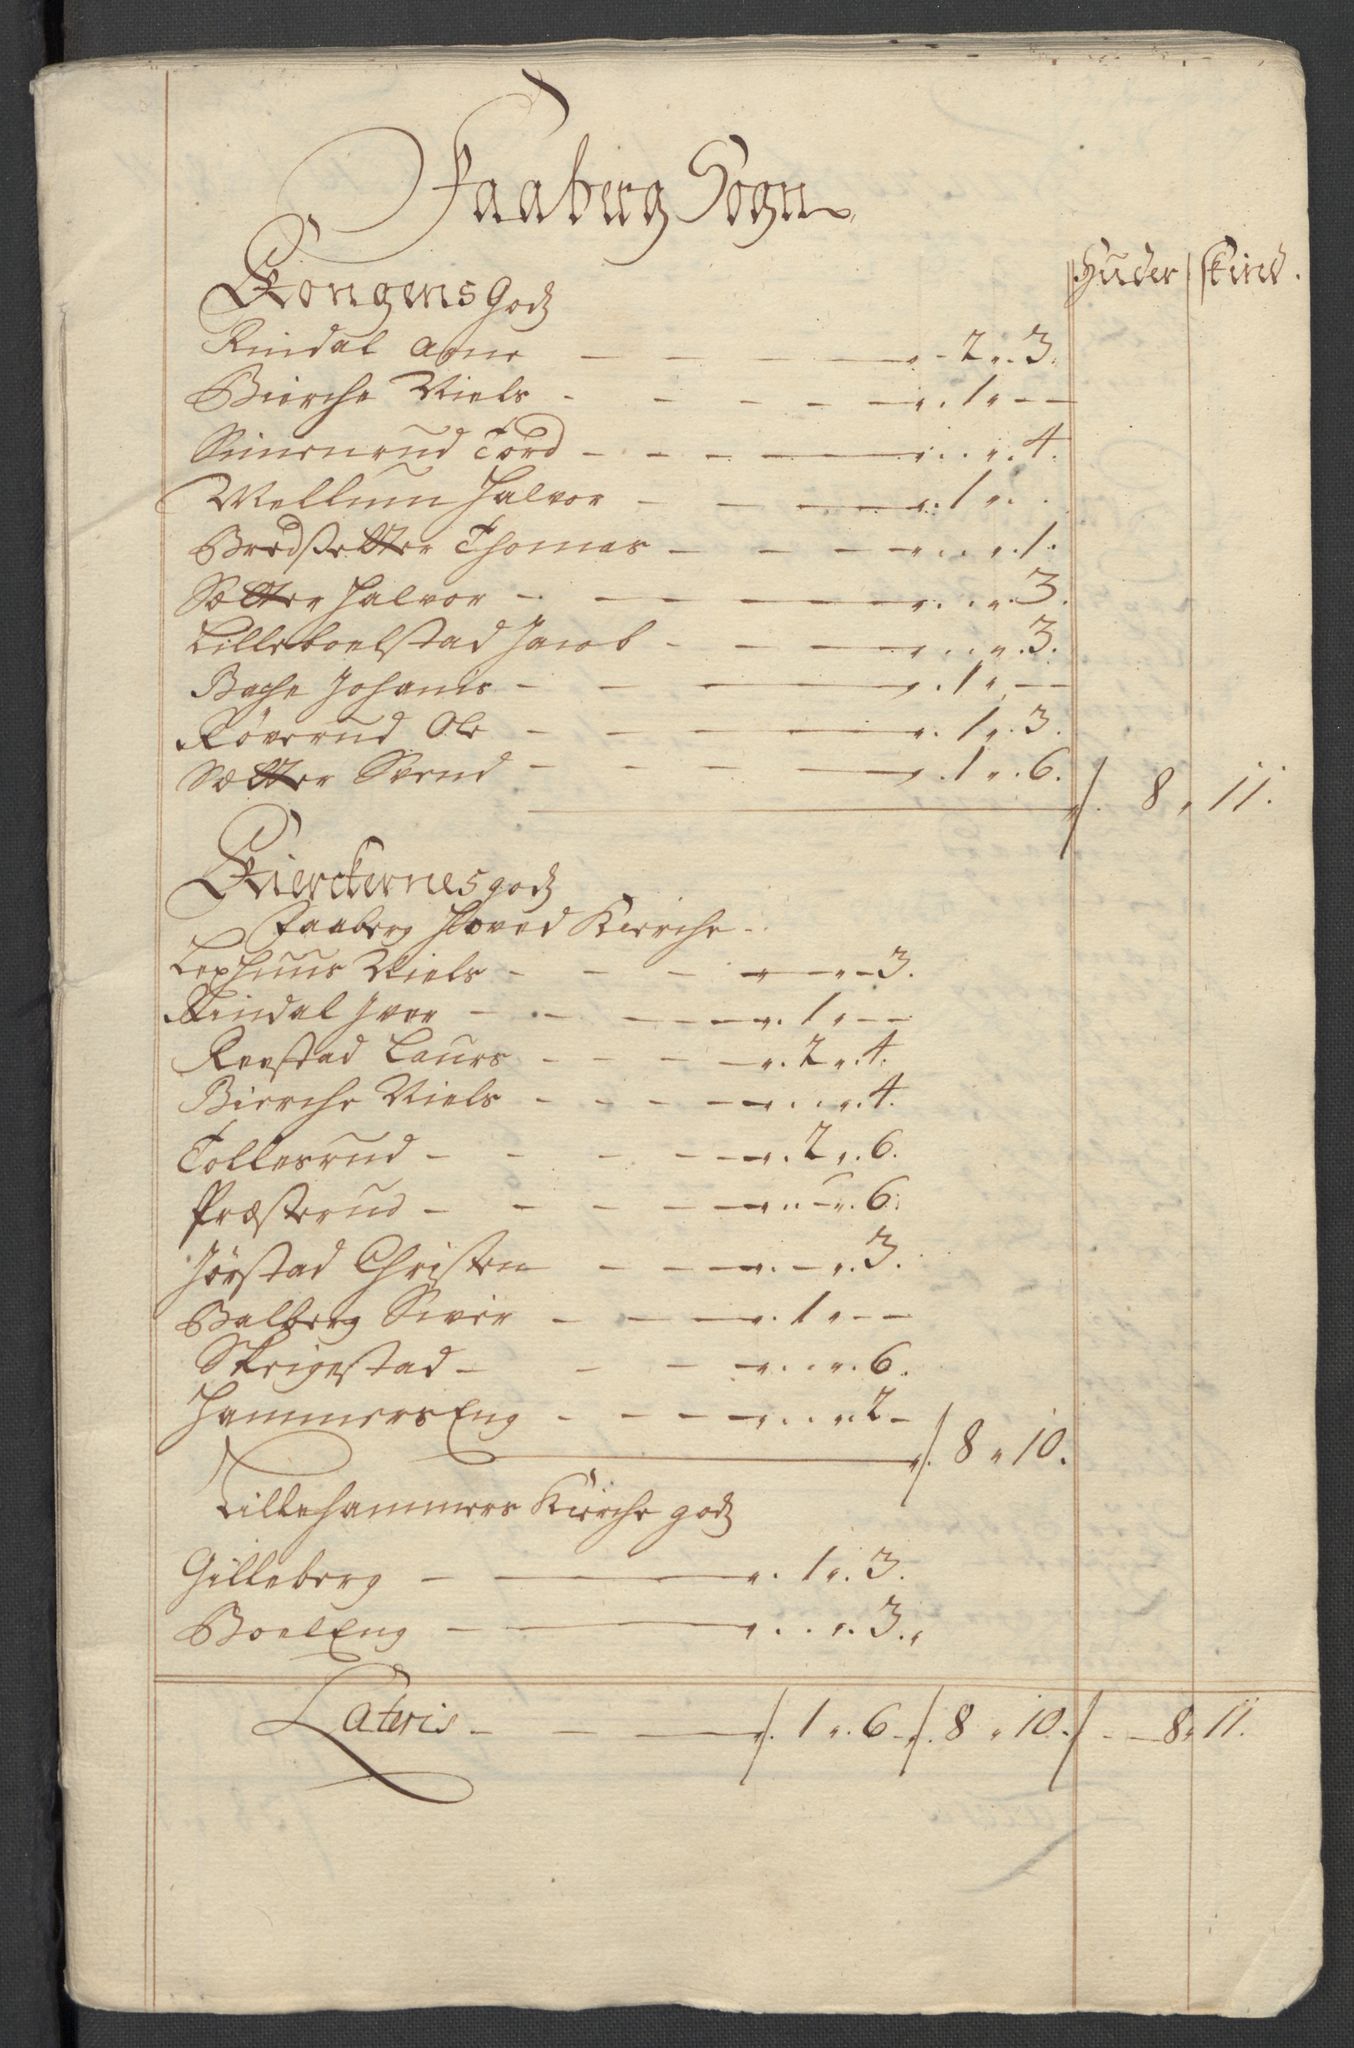 Faaberg Sogn
Huder skind.
Kongens godz
Rindal Arne - - - - 2 " 3.
Bierche Niels - - - - 1 " - -
Simenrud Tord - - - - " 4.
Mellum Halvor - - - 1 " .
Bredsetter Thomas - - - - " 1.
Sætter Halvor - - - - " 3.
Lilleboelstad Jacob - - - " 3.
Bache Johanis - - - 1 " - -
Røverud Ole - - - - 1 " 3.
Sætter Svend - - - - 1 " 6.
8 " 11.
Kierckernes godz
Faaberg Hoved Kierche
Lephuus Niels - - - " 3.
Rindal Iver - - - 1 " - -
Reestad Laurs - - - 2 " 4.
Bierche Niels - - - - " 4.
Tollersrud - - - - 2 " 6.
Præsterud - - - - " 6.
Jørstad Christen - - - " 3.
Balberg Siver - - - 1 " - -
Skrigestad - - - " 6.
Hammers Eng - - - - " 2 -
8 " 10.
Lillehammers Kirche godz
Gilleberg - - 1 " 3.
Boel Eng - - " 3.
Lateris - - - 1 " 6 - 8 " 10. - 8 " 11.